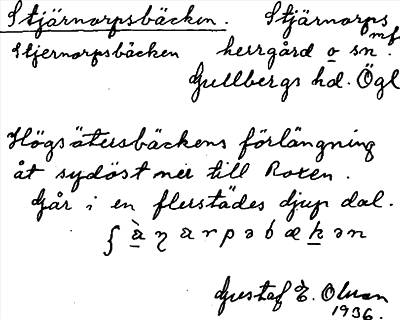 Stjärnorpsbäcken. Stjärnorps mf.
Stjernorpsbäcken herrgård o sn.
Gullbergs hd. Ögl
Högsätersbäckens förlängning
åt sydöst ner till Roxen.
Går i en flerstädes djup dal.
Gustaf E. Olsson
1936.